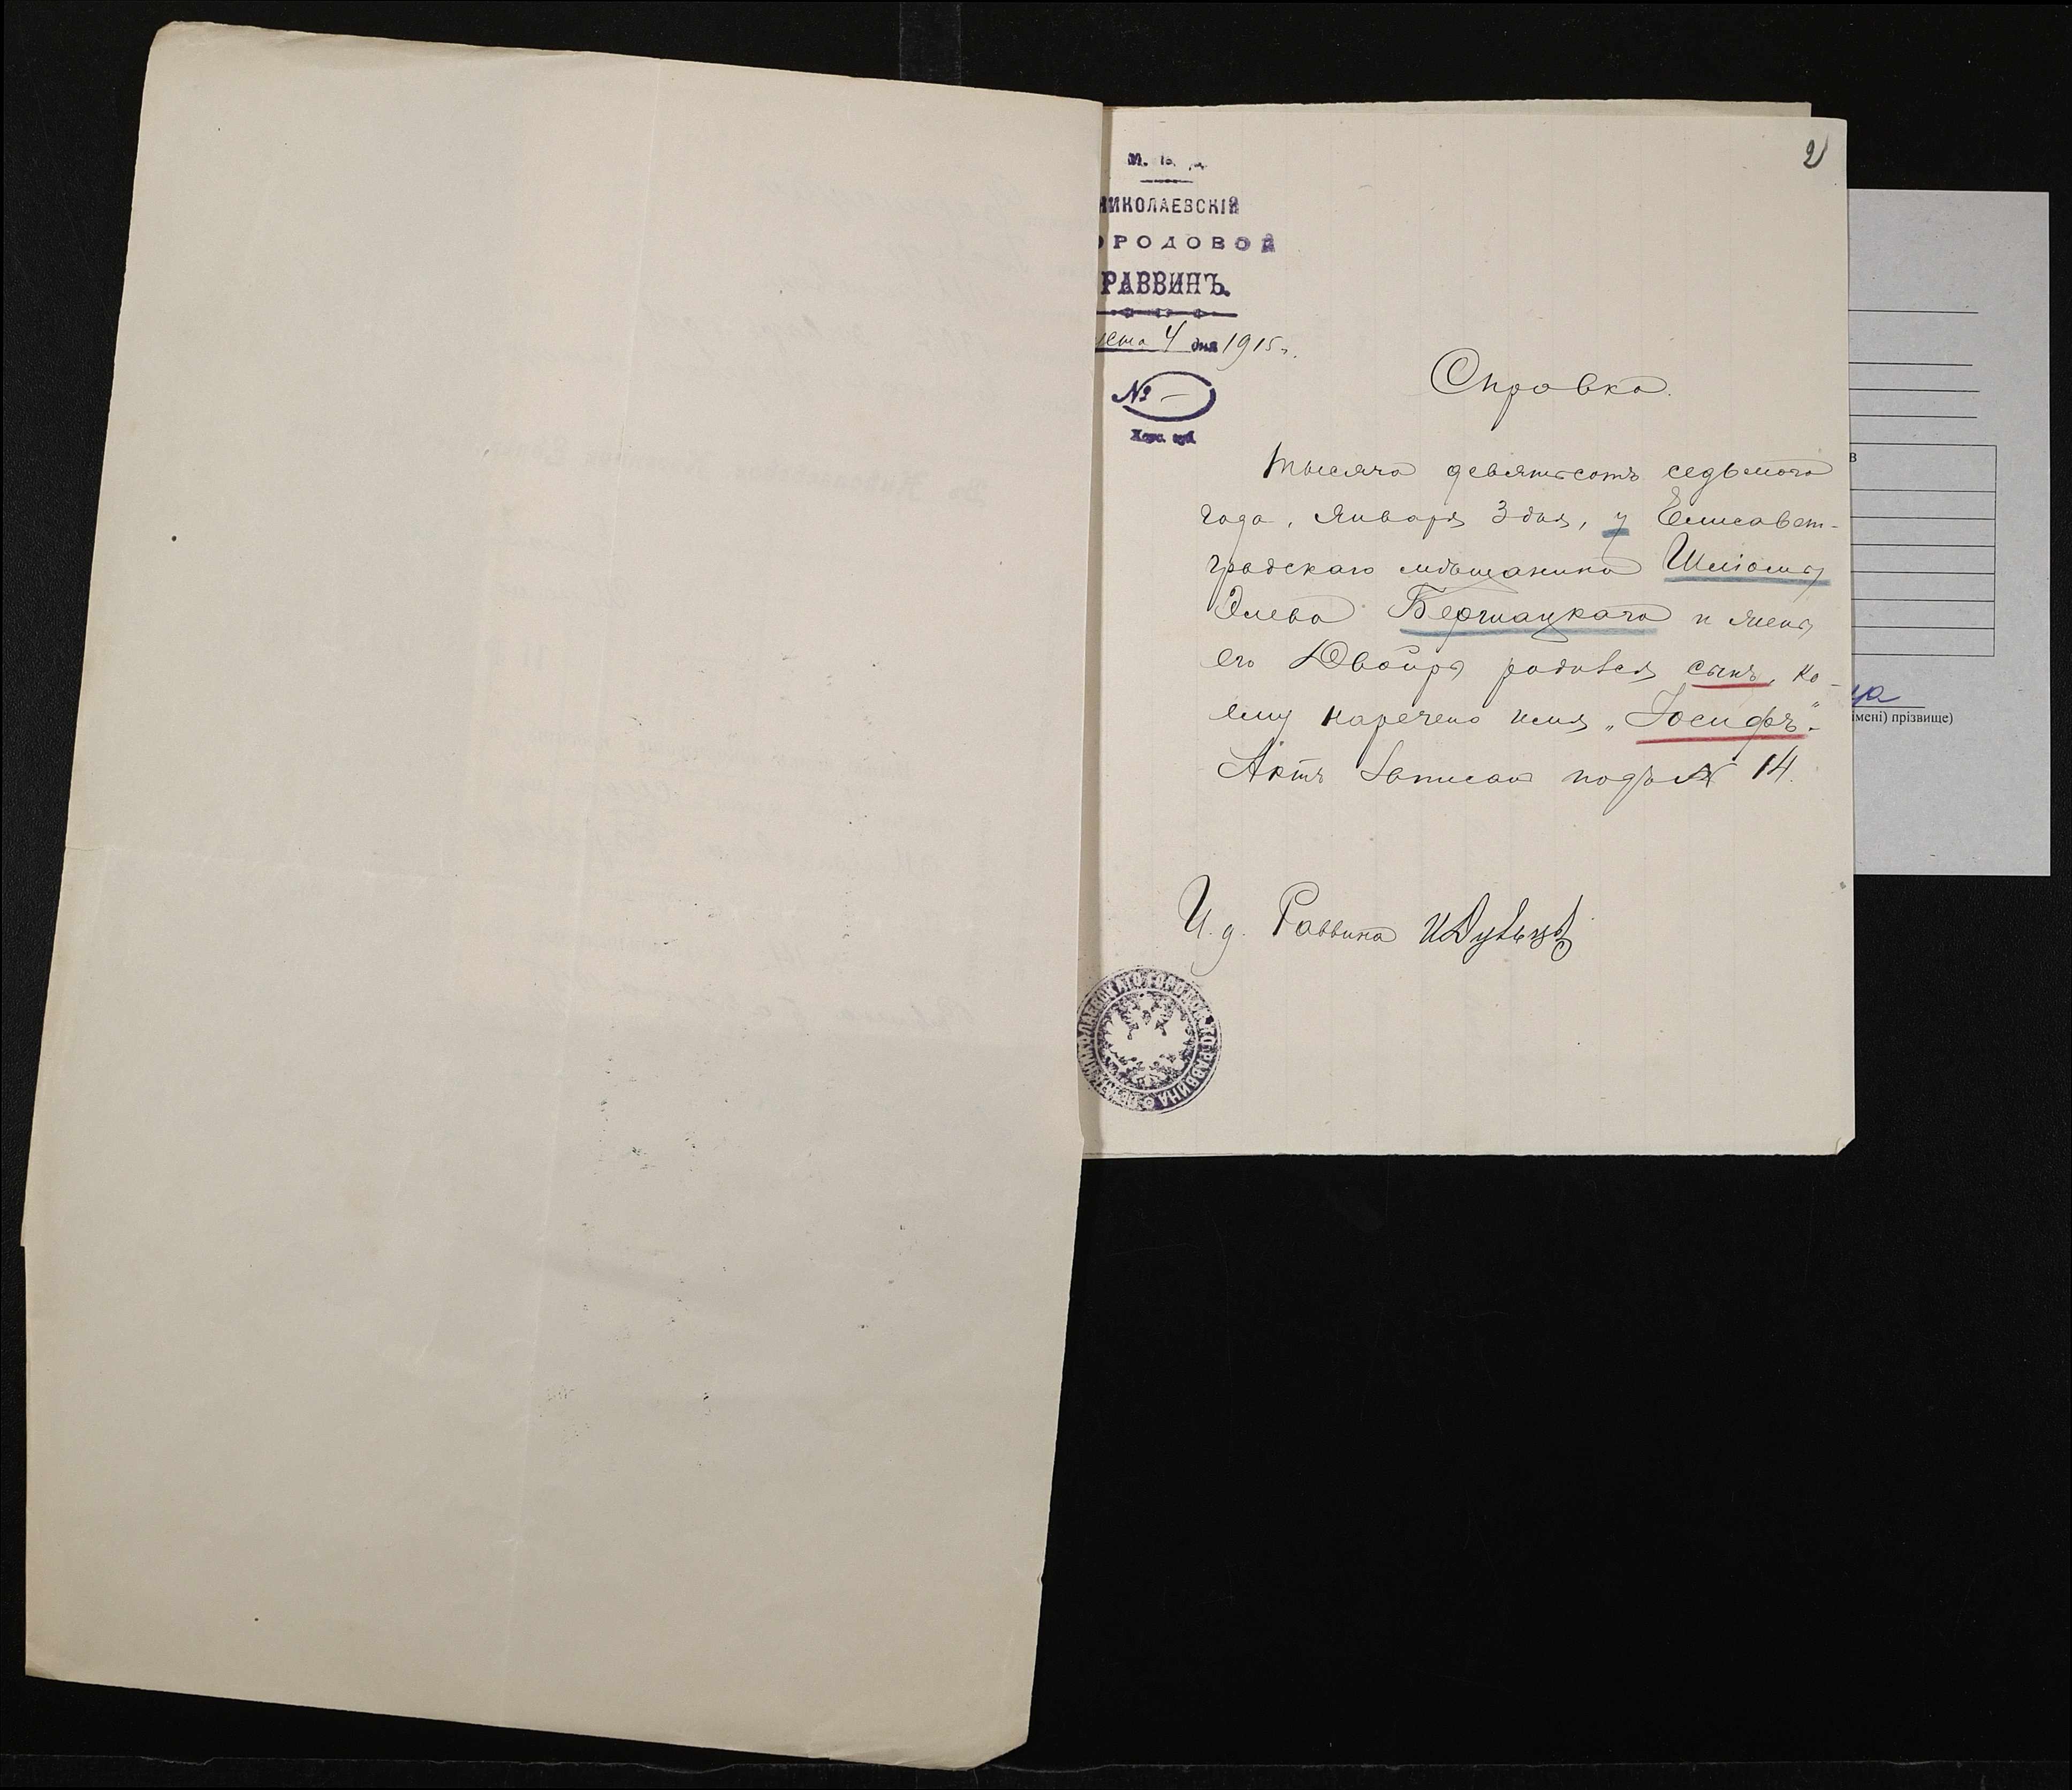 2
М. В. Д.
НИКОЛАЕВСКІЙ
ОРОДОВОЙ
РАВВИНЪ.
4 дня 1915 г.
№ —
Херс. губ.
Справка.
Тысяча девятьсотъ седьмого
года, Января 3 дня, у Елисавет-
градскаго мѣщанина Шліомы
Бершацкаго и жены
его Двойры родился сынъ, ко-
ему наречено имя „Іосифъ".
Актъ записан подъ № 14.
И. д. Раввина
НИКОЛАЕВСКАГО ГОРОДСКОГО РАВВИНА
в
ца
імені) прізвище)